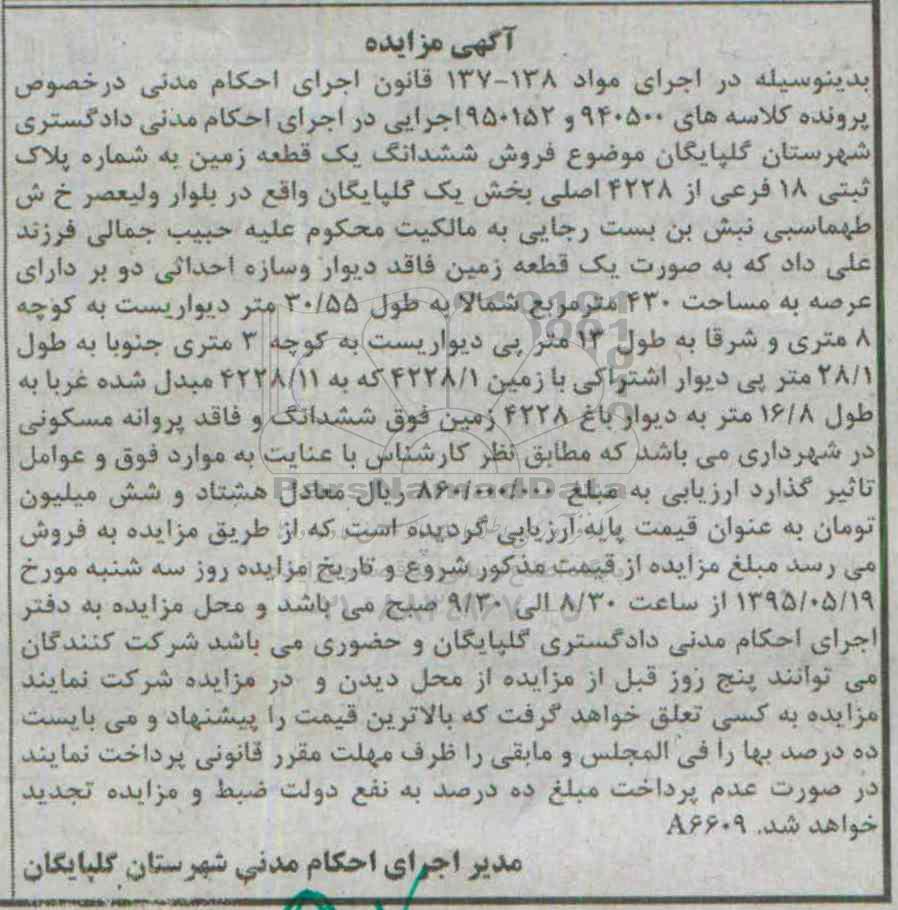 آگهی مزایده
بدینوسیله در اجرای مواد ۱۳۸-۱۳۷ قانون اجرای احکام مدنی درخصوص
پرونده کلاسه های ۹۴۰۵۰۰ و ۹۵۰۱۵۲ اجرایی در اجرای احکام مدنی دادگستری
شهرستان گلپایگان موضوع فروش ششدانگ یک قطعه زمین به شماره پلاک
ثبتی ۱۸ فرعی از ۴۲۲۸ اصلی بخش یک گلپایگان واقع در بلوار ولیعصر خ ش
طهماسبی نبش بن بست رجایی به مالکیت محکوم علیه حبیب جمالی فرزند
علی داد که به صورت یک قطعه زمین فاقد دیوار وسازه احداثی دو بر دارای
عرصه به مساحت ۴۳۰ مترمربع شمالا به طول ۳۰/۵۵ متر دیواریست به کوچه
۸ متری و شرقا به طول ۱۳ متر پی دیواریست به کوچه ۳ متری جنوبا به طول
۲۸/۱ متر پی دیوار اشتراکی با زمین ۴۲۲۸/۱ که به ۴۲۲۸/۱۱ مبدل شده غربا به
طول ۱۶/۸ متر به دیوار باغ ۴۲۲۸ زمین فوق ششدانگ و فاقد پروانه مسکونی
در شهرداری می باشد که مطابق نظر کارشناس با عنایت به موارد فوق و عوامل
تاثیر گذارد ارزیابی به مبلغ ۸۶۰/۰۰۰/۰۰۰ ریال معادل هشتاد و شش میلیون
تومان به عنوان قیمت پایه ارزیابی گردیده است که از طریق مزایده به فروش
می رسد مبلغ مزایده از قیمت مذکور شروع و تاریخ مزایده روز سه شنبه مورخ
۱۳۹۵/۰۵/۱۹ از ساعت ۸/۳۰ الی ۹/۳۰ صبح می باشد و محل مزایده به دفتر
اجرای احکام مدنی دادگستری گلپایگان و حضوری می باشد شرکت کنندگان
می توانند پنج روز قبل از مزایده از محل دیدن و در مزایده شرکت نمایند
مزایده به کسی تعلق خواهد گرفت که بالاترین قیمت را پیشنهاد و می بایست
ده درصد بها را فی المجلس و مابقی را ظرف مهلت مقرر قانونی پرداخت نمایند
در صورت عدم پرداخت مبلغ ده درصد به نفع دولت ضبط و مزایده تجدید
خواهد شد. A۶۶۰۹
مدیر اجرای احکام مدنی شهرستان گلپایگان
ParsNamadData